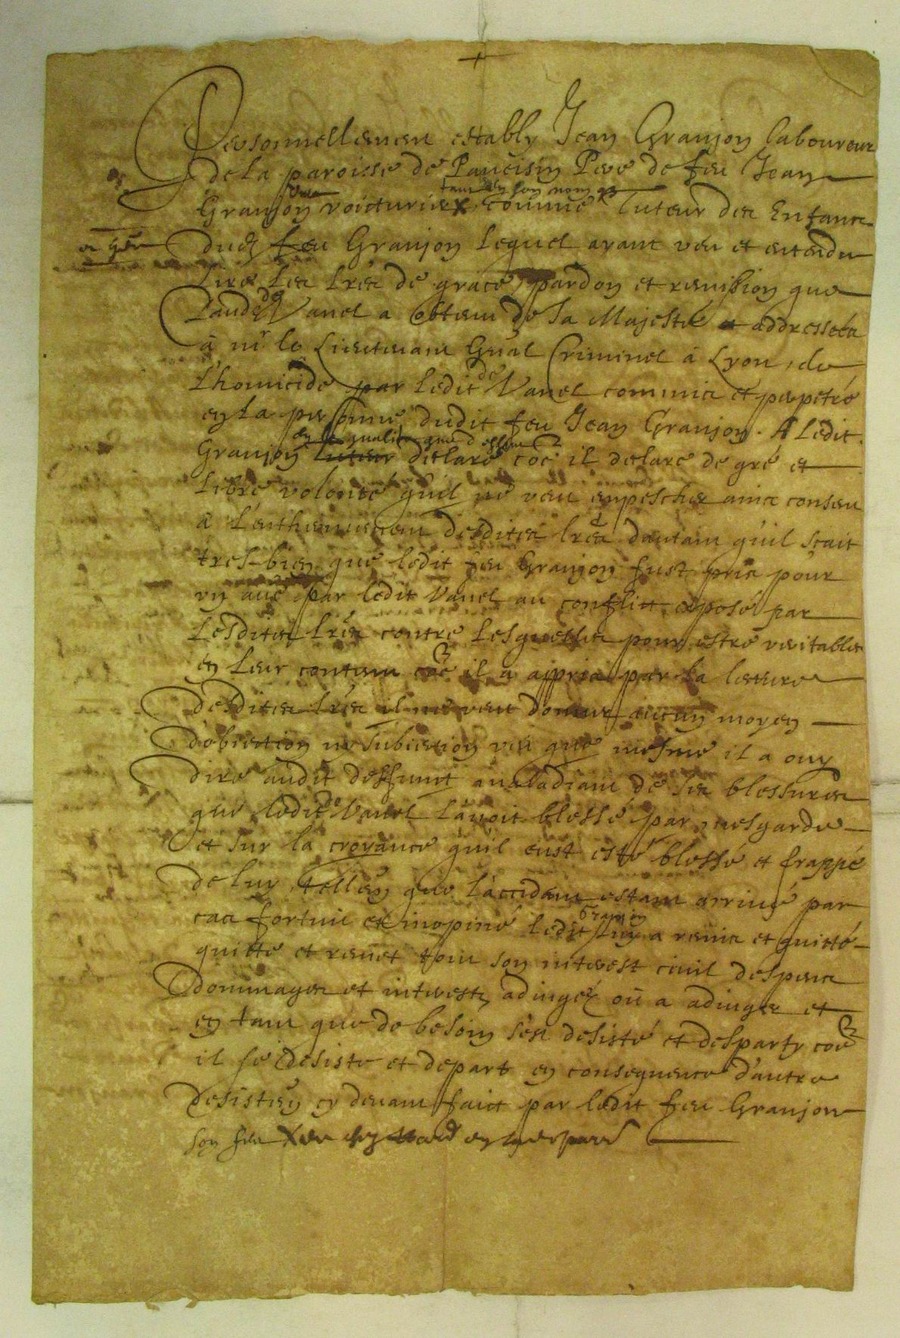 Personnellemen estably Jean Granjon laboureur
de la paroisse de Pere de feu Jean
tant en son nom q
Granjon voicturier comme Tuteur des Enfans
dud feu Granjon Lequel ayant veu et entendu
lire les lres de grace pardon et remission que
de Vanel a obtenu de sa Majesté et addressées
à mr le Lieutenant Gnal Criminel à Lyon, de
l'homicide par ledit de Vanel commis et perpetré
en la personne dudit feu Jean Granjon. A Ledit
qualité que dessus
Granjon declaré coe il declare de gré et
libre volonté qu'il ne veu enpescher ains consen
à l'entherinemen desdites lres dautam qu'il scait
tres-bien que ledit feu Granjon fust pris pour
vn par ledit Vanel au conflict exposé par
Lesdites lres contre Lesquelles pour estre veritables
en leur contenu coe il a appris par la lecture
Desdites lres il ne veut donner aucun moyen
d'obiection ny subiection veu que mesme il a ouy
dire audit deffunct de ses blessures
que ledit de Vanel l'avoit blessé par mesgarde
et sur la croyance qu'il eust esté blessé et frappé
de luy que l'accident estant arrivé par
cas fortuit et inopiné ledit Granjon a remis et quitté
quitte et remet tout son interest civil despens
Dommages et interestz adiugez ou a adiuger et
en tant que de besoin s'est desisté et desparty coe
il se desiste et depart en consequence d'autre
desistem cy devant faict par ledit feu Granjon
son feu